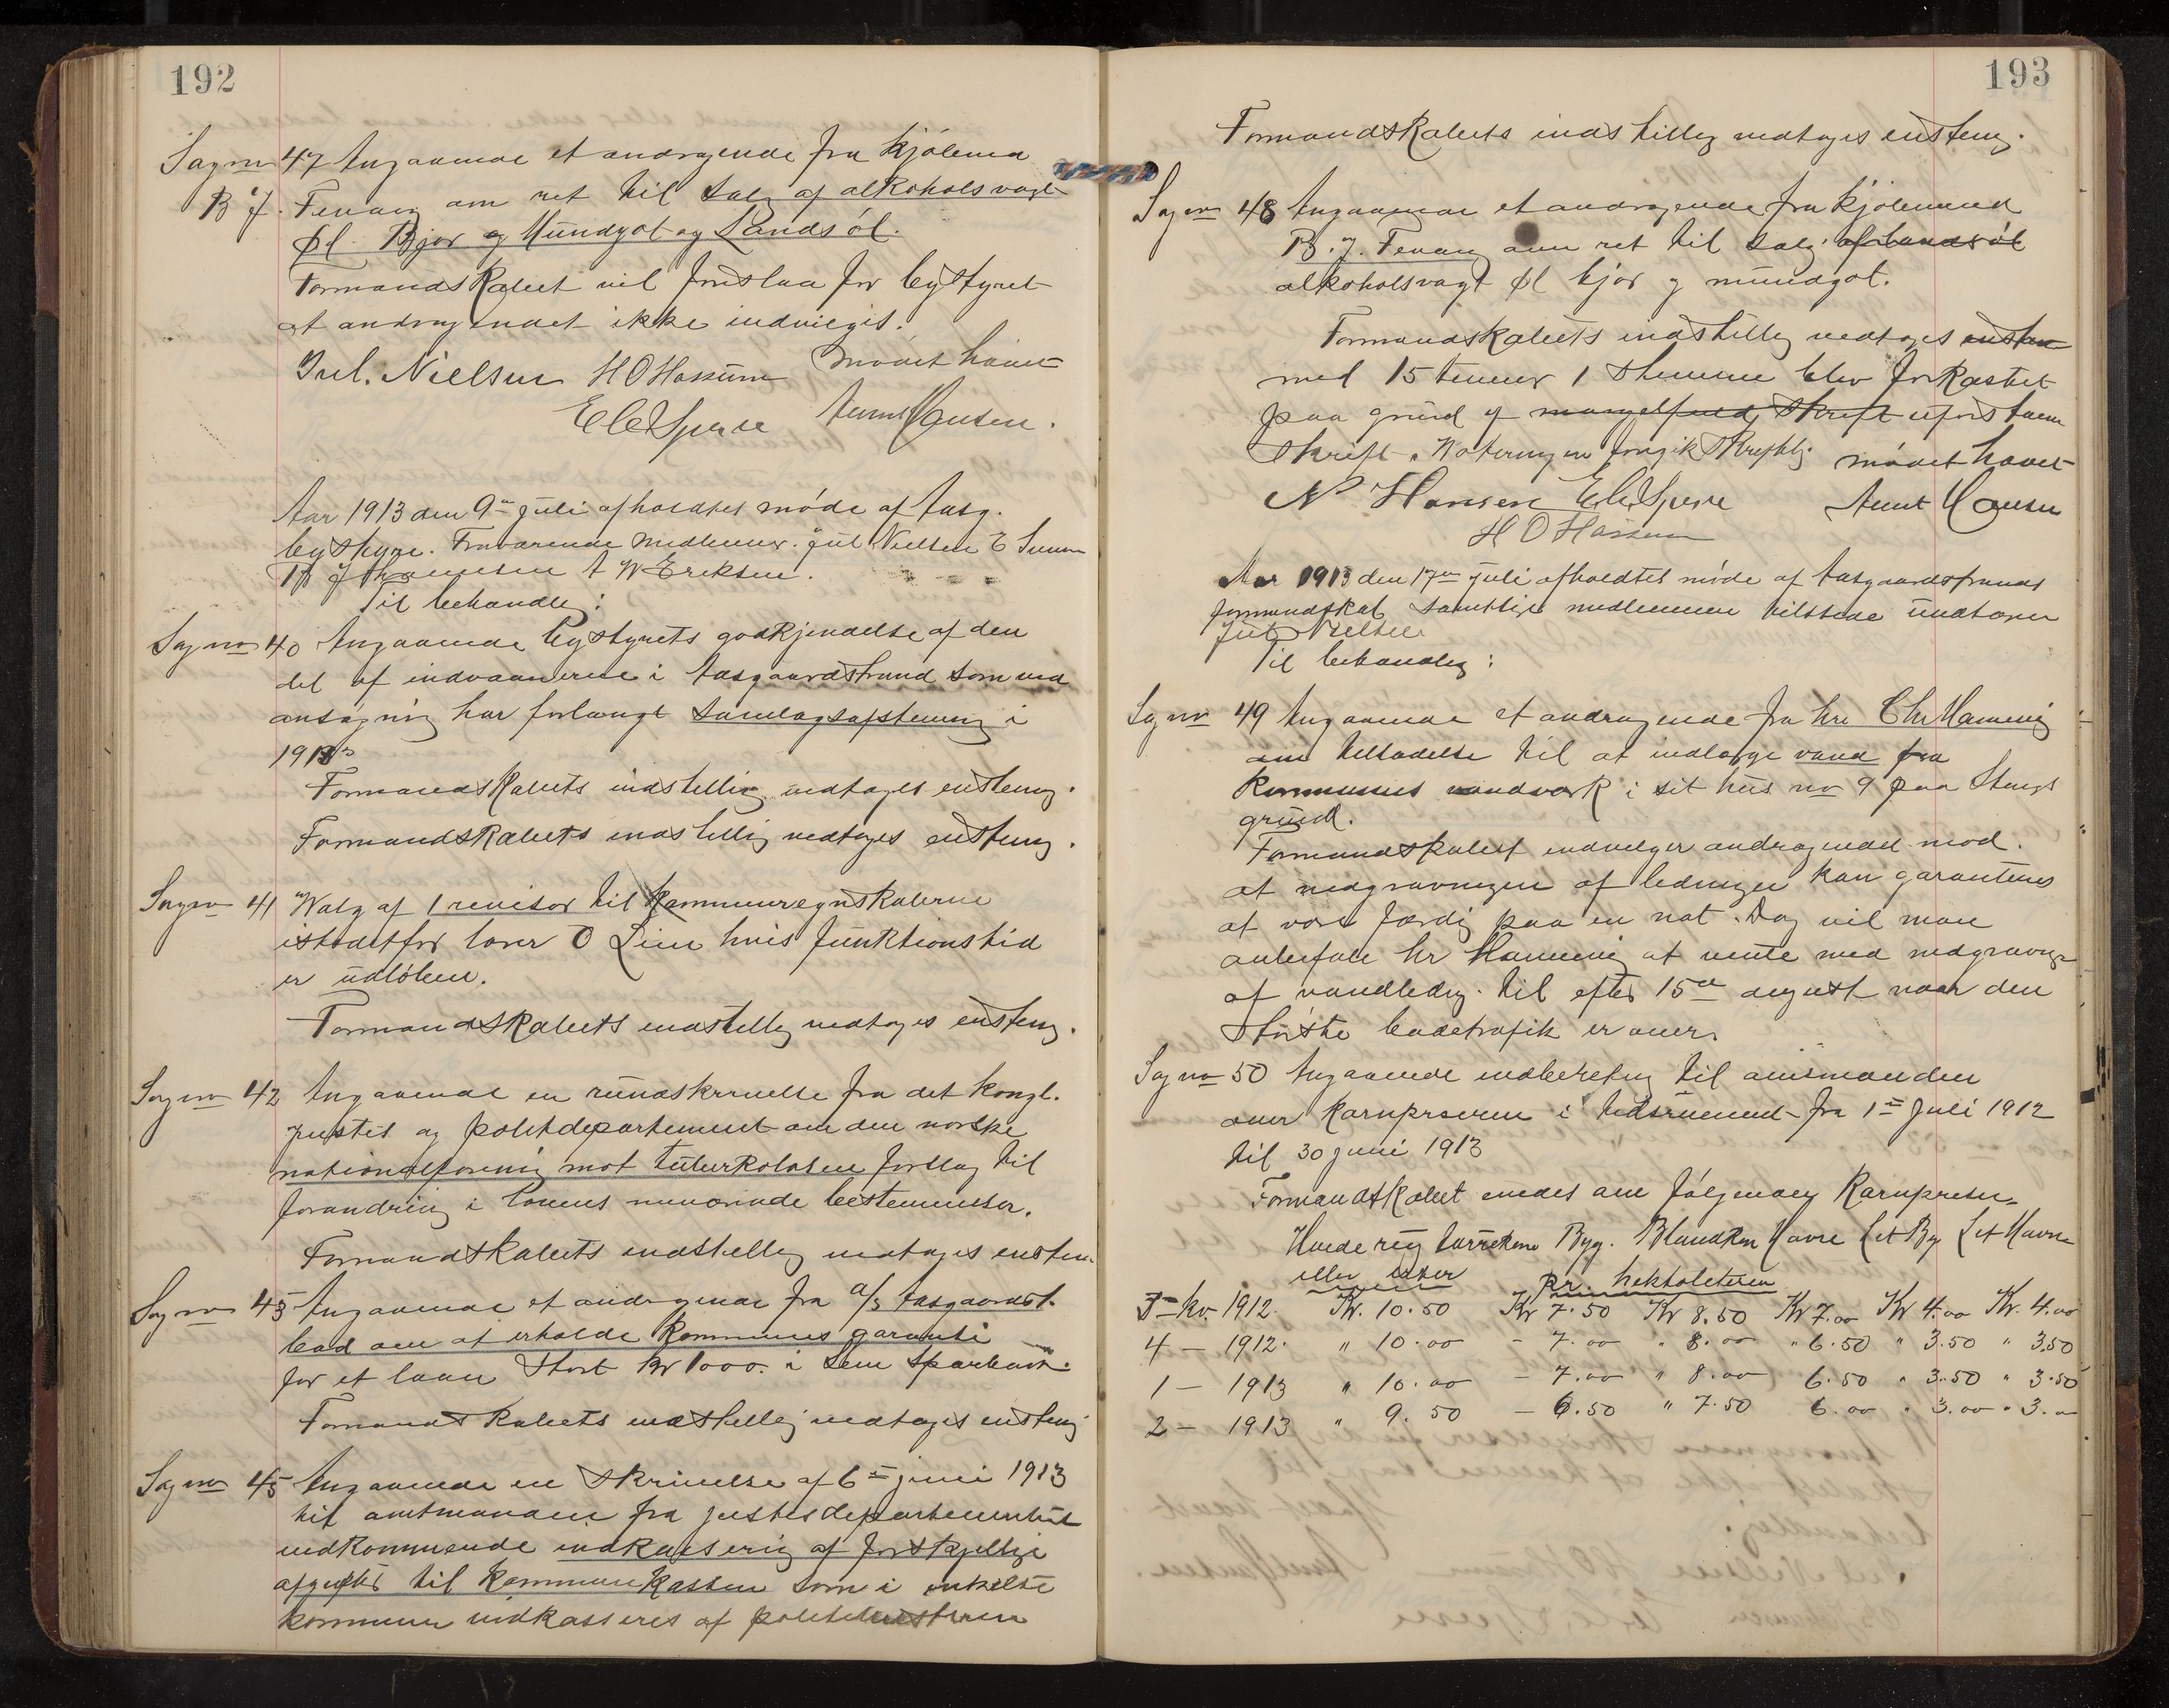 192
Sag no 47 Angaaende et andragende fra kjöbmd
B J. Tenvig om ret til salg af alkoholsvagt
Øl Bjor og Mundgot og Landsöl.
Formandskabet vil foreslaa for bystyret
at andragendet ikke indvilges.
Jul. Nielsen H O Hassum mödet hævet
E C Sperre Aunt Hansen.
Aar 1913 den 9de juli afholdtes möde af Aasg.
bystyre. Fraværende medlemmer: Jul Nielsen E
B J Thommesen A W Eriksen.
Til behandlig:
Sag no 40 Angaaende bystyrets godkjendelse af den
del af indvaanerne i Aasgaardstrand som ved
ansögning har forlangt samlagsafstemnig i
1913
Formandskabets indstillig vedtages enstemg.
Formandskabets indstillig vedtages enstemg.
Sag no 41 Valg af 1 revisor til kommuneregnskaberne
istedetfor lærer O Lien hvis funktionstid
er udlöben.
Formandskabets indstillig vedtages enstemg.
Sag no 42 Angaaende en rundskrivelse fra det kongl.
justis og politidepartement om den norske
nationalforenig mot tuberkolosen forslag til
forandring i lovens nuværende bestemmelser.
Formandskabets indstillig vedtages enstem.
Sag no 43 Angaaende et andragende fra a/s Aasgaardst.
bad om at erholde kommunes garanti
for et laan stort kr 1000. i Sem Sparbank.
Formandskabets indstillig vedtages enstemg
Sag no 45 Angaaende en skrivelse af 6te juni 1913
til amtmanden fra justisdepartementet
vedkommende indkasserig af forskjellige
afgifter til kommunekassen som i enkelte
kommuner indkasseres af politimesteren
193
Formandskabets indstillig vedtages enstemg.
Sag no 48 Angaaende et andragende fra kjöbmand
B. J. Tenvig om ret til salg af landsöl
alkoholsvagt øl bjor og mundgot.
Formandskabets indstillig vedtages enstem
med 15 stemmer 1 stemme blev forkastet
paa grund af mangelfuld skrift uforstaaen
skrift. Voteringen foregik skriftlig mödet hævet
N Hansen E C Sperre Aunt Hansen
H O Hassum
Aar 1913 den 17de juli afholdtes möde af Aasgaardstrands
formandskab samtlige medlemmer tilstede undtagen
Jul Nielsen
Til behandlig:
Sag no 49 Angaaende et andragende fra hr. Chr Hannevig
om tilladelse til at indlægge vand fra
kommunens vandværk i sit hus no 9 paa Stangs
grund.
Formandskabet indvilger andragendet mod
at nedgravningen af ledningen kan garanteres
at være færdig paa en nat. Dog vil man
anbefale hr Hannevig at vente med nedgravnge
af vandledng. til efter 15de august naar den
störste badetrafik er over.
Sag no 50 Angaaende indberetng til amtmanden
over kornpriserne i tidsrummet fra 1ste Juli 1912
til 30 juni 1913
Formandskabet enedes om fölgende kornpriser
Hvede rug tørrekorn Byg. Blandkorn Havre Let Byg Let Havre
eller erter pr. hektoliteren
3die kv. 1912. Kr. 10.50 Kr 7.50 Kr 8.50 Kr 7.00 Kr 4.00 Kr. 4.00
4 — 1912. " 10.00 - 7.00 " 8.00 " 6.50 " 3.50 " 3.50
1 — 1913 " 10.00 - 7.00 " 8.00 6.50 " 3.50 " 3.50
2 — 1913 " 9.50 — 6.50 " 7.50 6.00 " 3.00 " 3.00